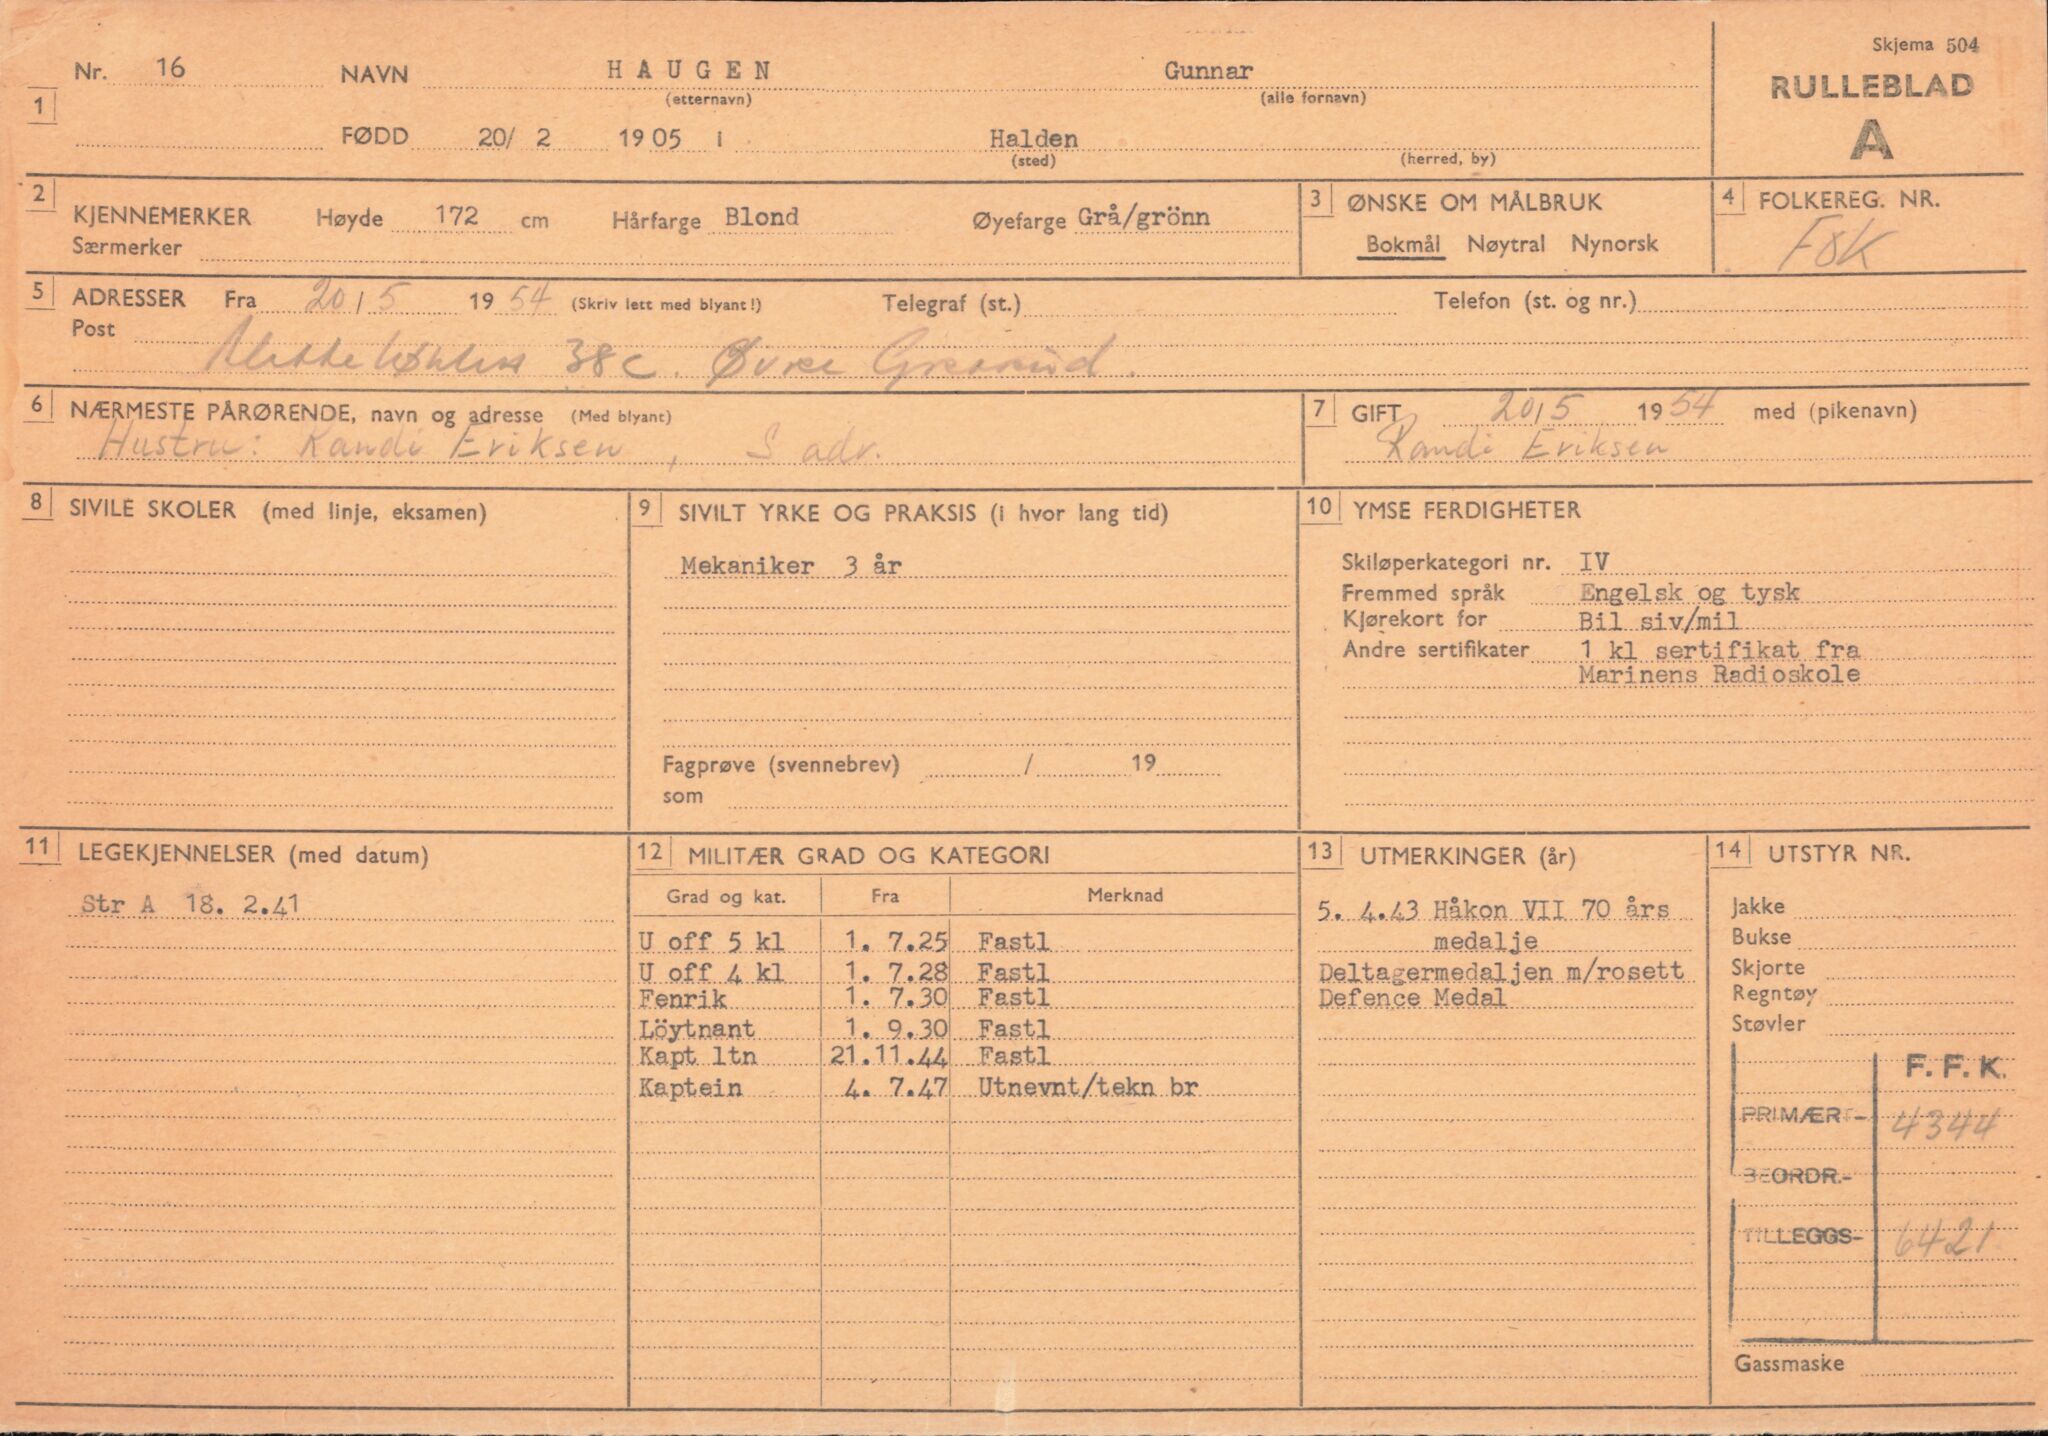 Skjema 504
Nr. 16 NAVN HAUGEN Gunnar
RULLEBLAD
1 (etternavn) (alle fornavn)
A
FØDD 20/ 2 1905 i Halden
(sted) (herred, by)
2 KJENNEMERKER Høyde 172 cm Hårfarge Blond Øyefarge Grå/grönn
Særmerker
3 ØNSKE OM MÅLBRUK
Bokmål Nøytral Nynorsk
4 FOLKEREG. NR.
FØK
5 ADRESSER Fra 20/5 1954 (Skriv lett med blyant!) Telegraf (st.) Telefon (st. og nr.)
Post
38c. Øvre Grefsrud.
6 NÆRMESTE PÅRØRENDE, navn og adresse (Med blyant)
Hustru: Randi Eriksen, S adr.
7 GIFT 20/5 1954 med (pikenavn)
Randi Eriksen
8 SIVILE SKOLER (med linje, eksamen)
9 SIVILT YRKE OG PRAKSIS (i hvor lang tid)
Mekaniker 3 år
Fagprøve (svennebrev) / 19
som
10 YMSE FERDIGHETER
Skiløperkategori nr. IV
Fremmed språk Engelsk og tysk
Kjørekort for Bil siv/mil
Andre sertifikater 1 kl sertifikat fra
Marinens Radioskole
11 LEGEKJENNELSER (med datum)
Str A 18. 2.41
12 MILITÆR GRAD OG KATEGORI
Grad og kat. Fra Merknad
U off 5 kl 1. 7.25 Fastl
U off 4 kl 1. 7.28 Fastl
Fenrik 1. 7.30 Fastl
Löytnant 1. 9.30 Fastl
Kapt ltn 21.11.44 Fastl
Kaptein 4. 7.47 Utnevnt/tekn br
13 UTMERKINGER (år)
5. 4.43 Håkon VII 70 års
medalje
Deltagermedaljen m/rosett
Defence Medal
14 UTSTYR NR.
Jakke
Bukse
Skjorte
Regntøy
Støvler
F. F. K.
PRIMÆRT- 4344
BEORDR.-
TILLEGGS- 6421
Gassmaske